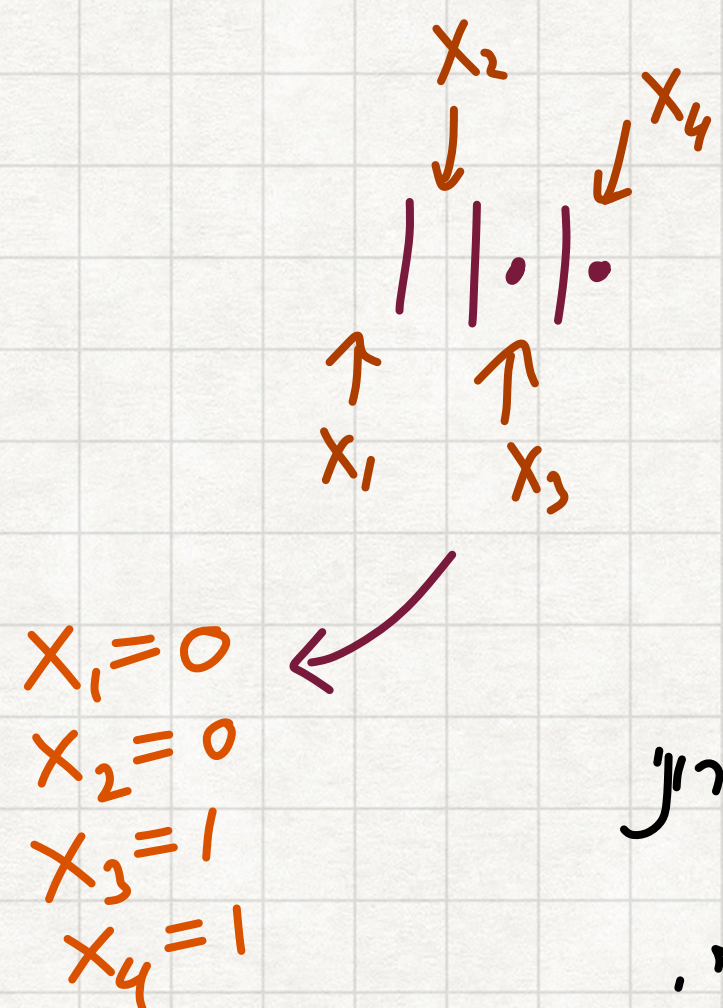 X₂
X₄
| | • | •
X₁
X₃
X₁ = 0
X₂ = 0
X₃ = 1
X₄ = 1